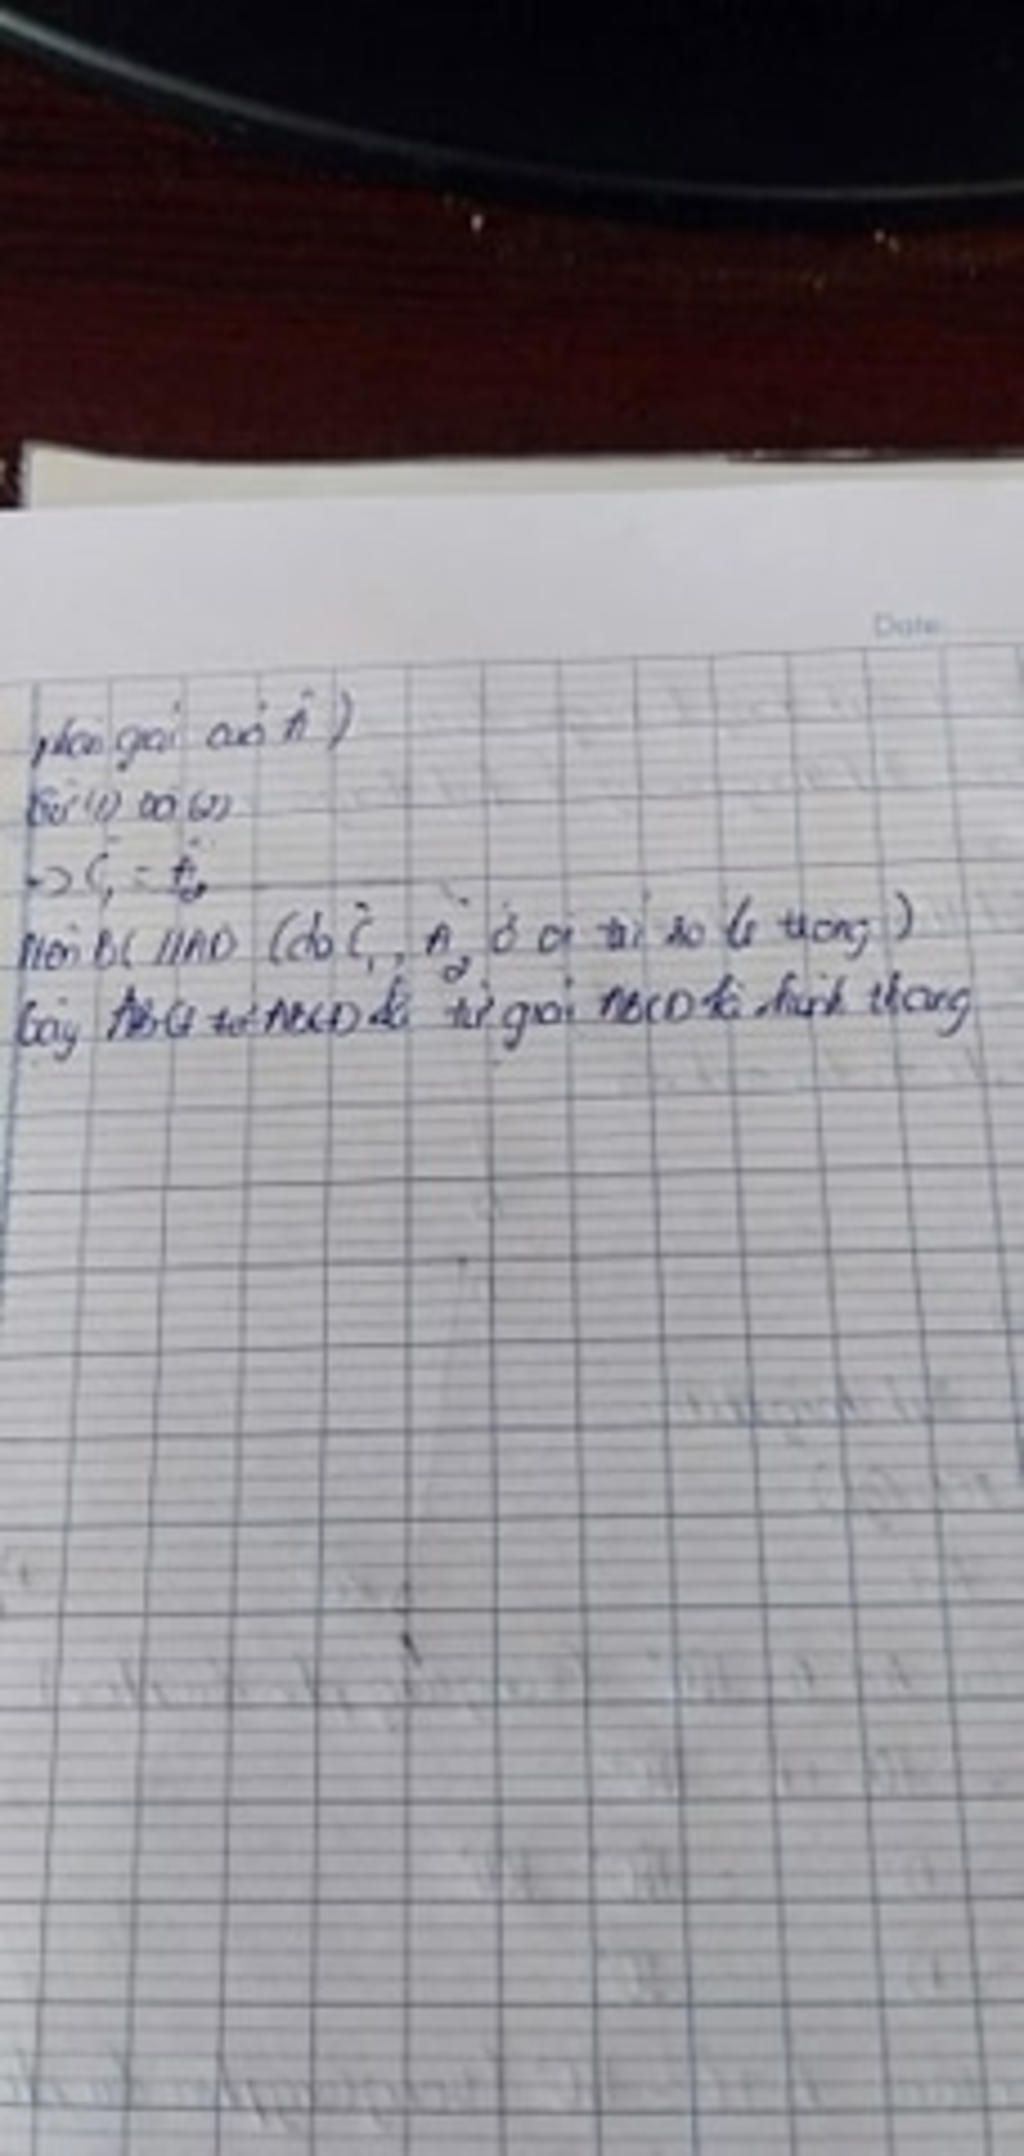 Date:
phân giác của Â )
Từ (1) và (2)
=> Ĉ₁ = Â₂
Nên BC // AD (do Ĉ₁, Â₂ ở vị trí so le trong)
Vậy tứ giác ABCD là hình thang